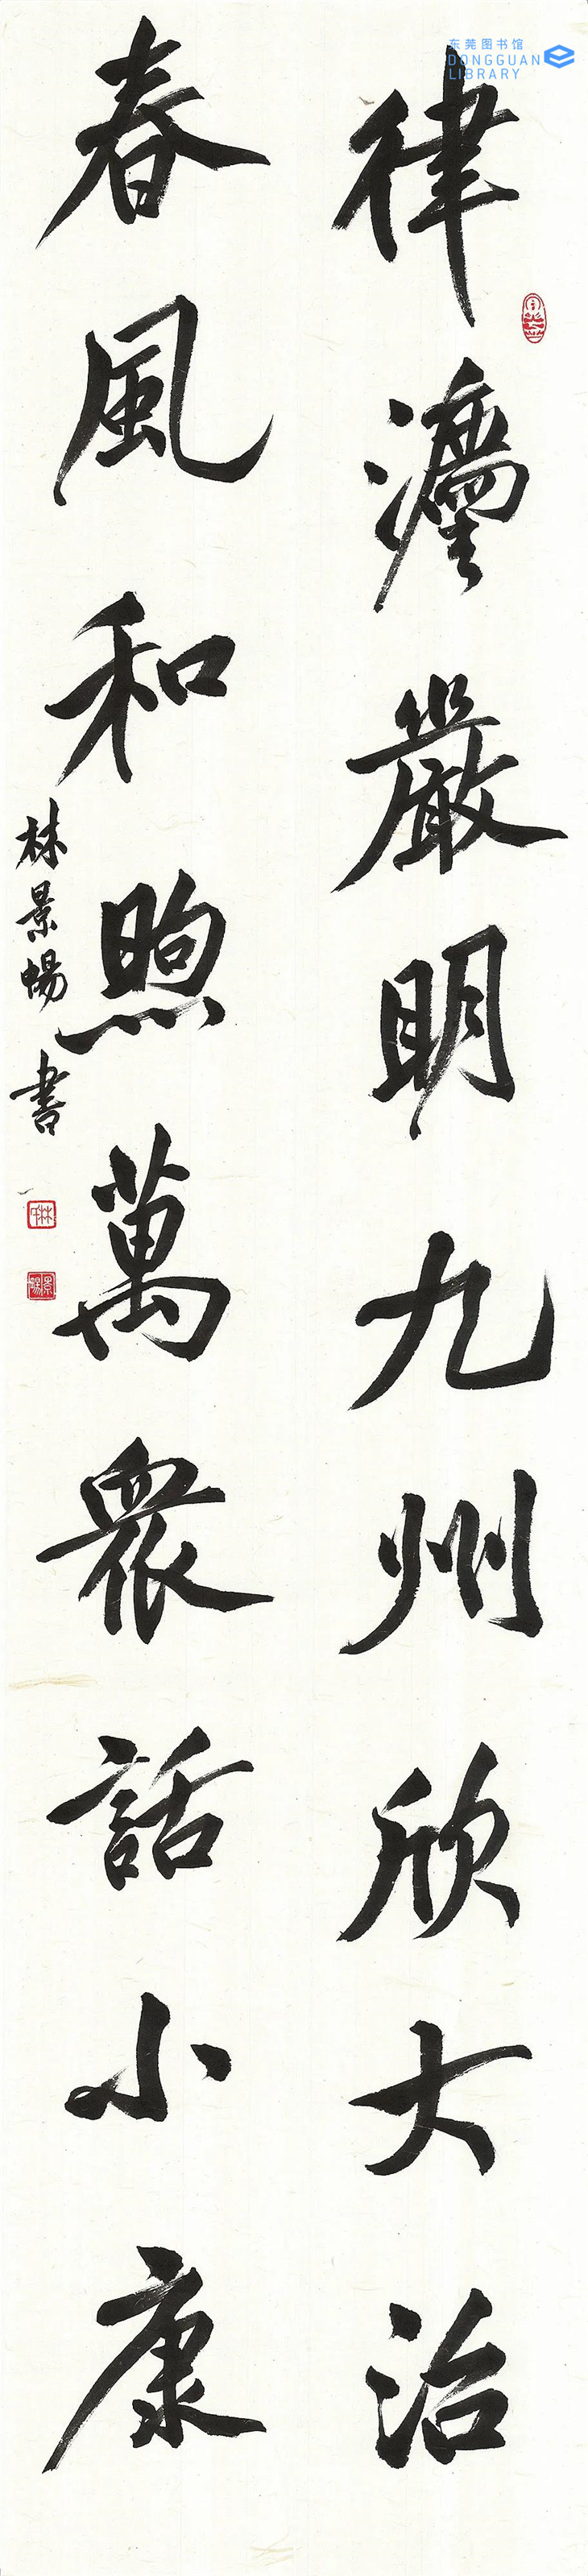 东莞图书馆
DONGGUAN
LIBRARY
律灋嚴明九州欣大治
春風和煦萬衆話小康
林景暢書